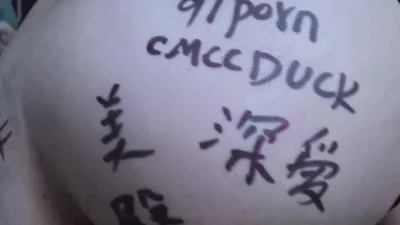 91porn
CMCCDUCK
美 深爱
臀